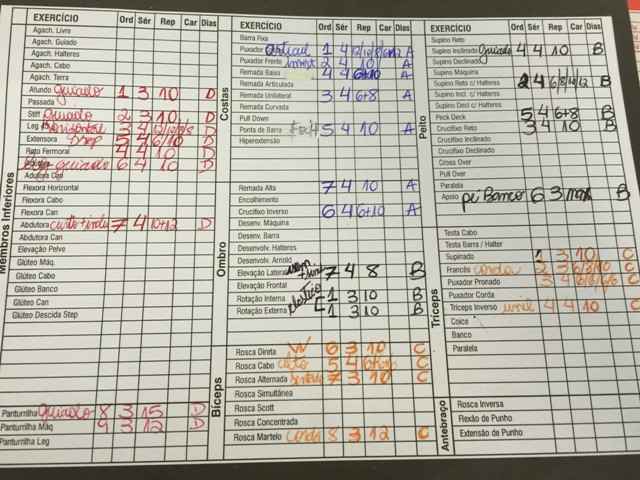 EXERCÍCIO Ord Sér Rep Car Dias
Agach. Livre
Agach. Guiado
Agach. Halteres
Agach. Cabo
Agach. Terra
Afundo guiado 1 3 10 D
Passada
Stiff guiado 2 3 10 D
Leg Horizontal 3 4 D
Extensora 5 4 6/10 D
Rato Femoral 4 4 10 D
guiado 6 4 10 D
Adutora Can
Flexora Horizontal
Flexora Cabo
Flexora Can
Abdutora 7 4 10+12 D
Abdutora Can
Elevação Pelve
Glúteo Máq.
Glúteo Cabo
Glúteo Banco
Glúteo Can
Glúteo Descida Step
Panturrilha guiado 8 3 15 D
Panturrilha Máq 9 3 12 D
Panturrilha Leg
Membros Inferiores
EXERCÍCIO Ord Sér Rep Car Dias
Barra Fixa
Puxador 1 4 A
Puxador Frente invert 2 4 10 A
Remada Baixa 4 4 6+10 A
Remada Articulada
Remada Unilateral 3 4 6+8 A
Remada Curvada
Pull Down
Ponta de Barra 5 4 10 A
Hiperextensão
Costas
Remada Alta 7 4 10 A
Encolhimento
Crucifixo Inverso 6 4 6+10 A
Desenv. Máquina
Desenv. Barra
Desenvolv. Halteres
Desenvolv. Arnold
Elevação Lateral 7 4 8 B
Elevação Frontal
Rotação Interna elástico 1 3 10 B
Rotação Externa 1 3 10 B
Ombro
Rosca Direta W 6 3 10 C
Rosca Cabo 5 4 C
Rosca Alternada 7 3 10 C
Rosca Simultânea
Rosca Scott
Rosca Concentrada
Rosca Martelo corda 8 3 12 C
Biceps
EXERCÍCIO Ord Sér Rep Car Dias
Supino Reto
Supino Inclinado guiado 4 4 10 B
Supino Declinado
Supino Máquina
Supino Reto c/ Halteres 2 4 6/8/10/12 B
Supino Incl. c/ Halteres
Supino Decl c/ Halteres
Peck Deck 5 4 6+8 B
Crucifixo Reto 3 4 10 B
Crucifixo Inclinado
Crucifixo Declinado
Cross Over
Pull Over
Paralela
Apoio pé Banco 6 3 max B
Peito
Testa Cabo
Testa Barra / Halter
Supinado 1 3 10 C
Francês corda 2 3 6/8/10 C
Puxador Pronado 3 4 C
Puxador Corda
Triceps Inverso unil 4 4 10 C
Coice
Banco
Paralela
Triceps
Rosca Inversa
Flexão de Punho
Extensão de Punho
Antebraço